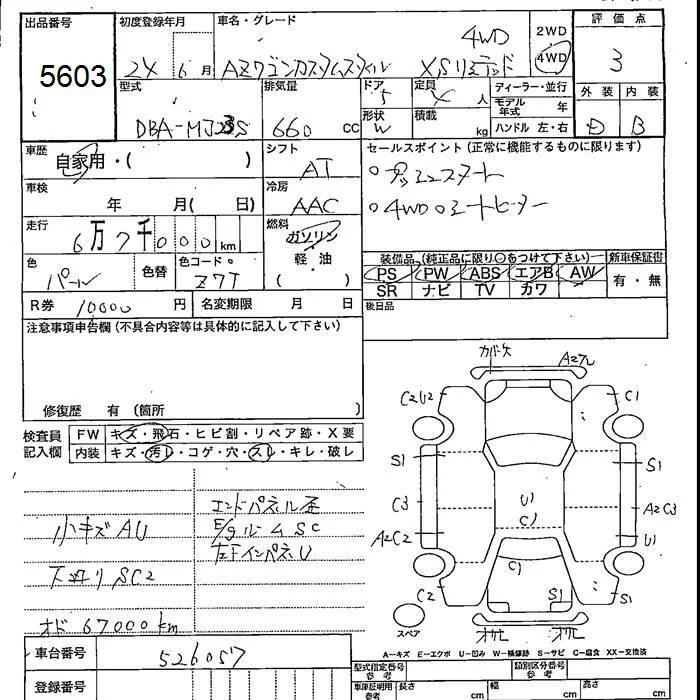 出品番号 初度登録年月 車名・グレード 評価点
5603 24年6月 AZワゴンカスタムスタイル XSリミテッド 4WD 2WD 4WD 3
型式 排気量 ドア 定員 ディーラー・並行 外装 内装
DBA-MJ23S 660 CC 5 4 人 モデル年式 年
形状 積載 D B
W kg ハンドル 左・右
車歴 シフト セールスポイント(正常に機能するものに限ります)
自家用・( ) AT ○プッシュスタート
車検 冷房 ○4WD○シートヒーター
年 月( 日) AAC
走行 燃料
6万7千000km ガソリン 装備品(純正品に限り○をつけて下さい) 新車保証書
色 色替 色コード 軽油 PS PW ABS エアB AW 有・無
パール Z7T ( ) SR ナビ TV カワ
R券 10000 円 名変期限 月 日 後日品
注意事項申告欄(不具合内容等は具体的に記入して下さい)
修復歴 有(箇所 )
検査員 FW キズ・飛石・ヒビ割・リペア跡・X要
記入欄 内装 キズ・汚レ・コゲ・穴・スレ・キレ・破レ
エンドパネル歪
小キズAU E/gルームSC
左インパネU
下廻りSC2
オド 67000km
C2U2 C1
S1 S1
C3 U1 A2C3
C1
A2C2 U1
C1
C2 S1 S1
スペア
A-キズ E-エクボ U-凹み W-補修跡 S-サビ C-腐食 XX-交換済
車台番号 526057
型式指定番号 参考 類別区分番号 参考
登録番号
車庫証明用参考 長さ cm 幅 cm 高さ cm